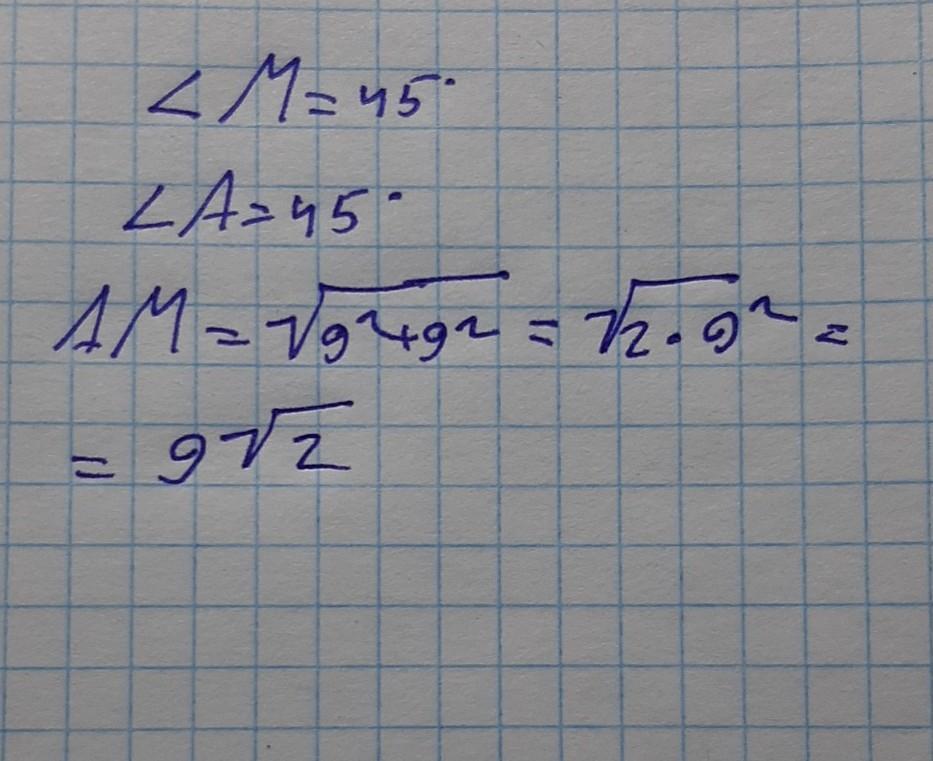 ∠M=45°
∠A=45°
AM=√9²+9² = √2·9² =
= 9√2